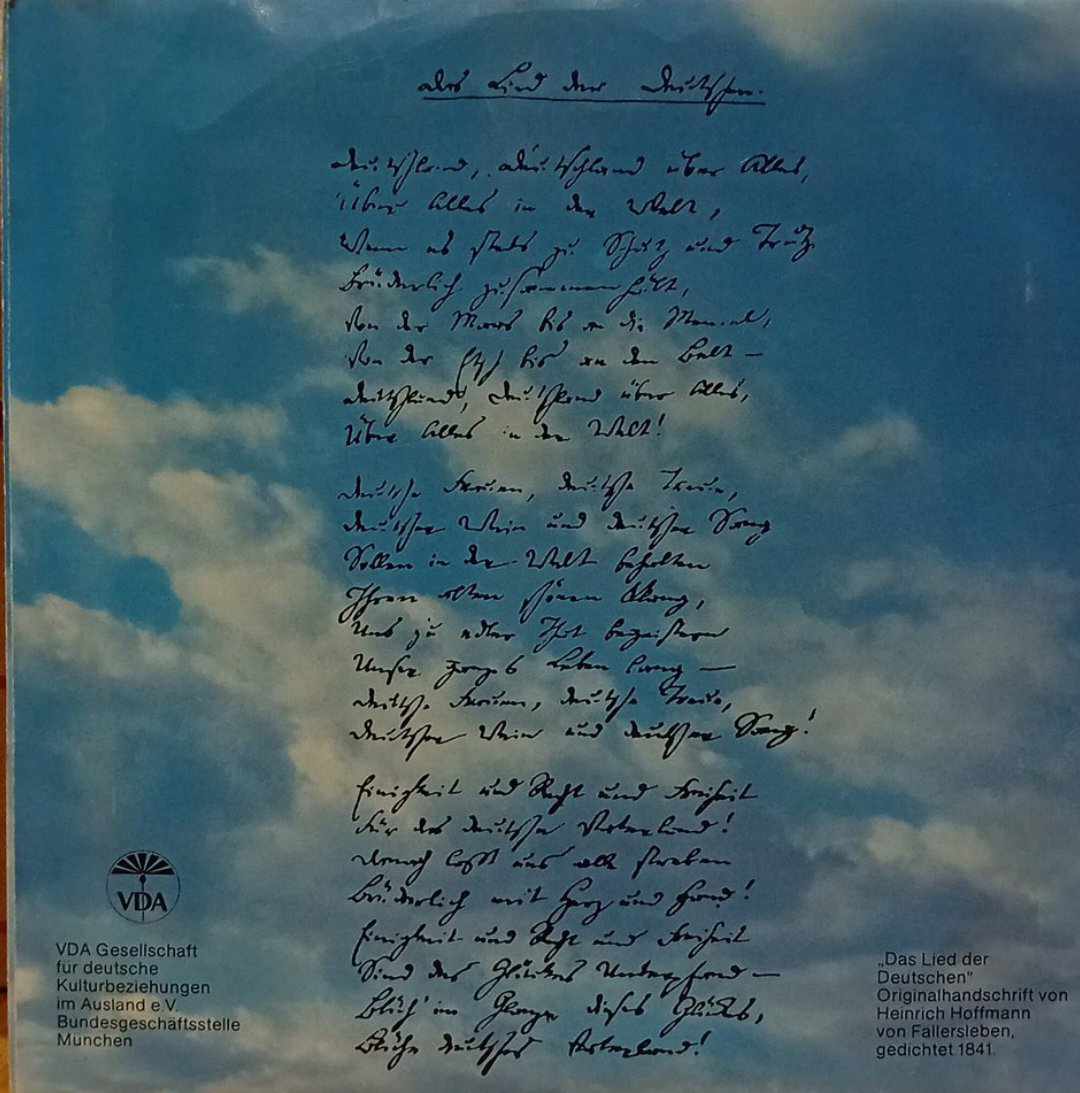 Das Lied der Deutschen.
Deutschland, Deutschland über Alles,
Über Alles in der Welt,
Wenn es stets zu Schutz und Trutze
Brüderlich zusammenhält,
Von der Maas bis an die Memel,
Von der Etsch bis an den Belt —
Deutschland, Deutschland über Alles,
Über Alles in der Welt!
Deutsche Frauen, deutsche Treue,
Deutscher Wein und deutscher Sang
Sollen in der Welt behalten
Ihren alten schönen Klang,
Uns zu edler That begeistern
Unser ganzes Leben lang —
Deutsche Frauen, deutsche Treue,
Deutscher Wein und deutscher Sang!
Einigkeit und Recht und Freiheit
Für das deutsche Vaterland!
Danach laßt uns alle streben
Brüderlich mit Herz und Hand!
Einigkeit und Recht und Freiheit
Sind des Glückes Unterpfand —
Blüh' im Glanze dieses Glückes,
Blühe deutsches Vaterland!
VDA
VDA Gesellschaft
für deutsche
Kulturbeziehungen
im Ausland e.V.
Bundesgeschäftsstelle
München
„Das Lied der
Deutschen"
Originalhandschrift von
Heinrich Hoffmann
von Fallersleben,
gedichtet 1841.